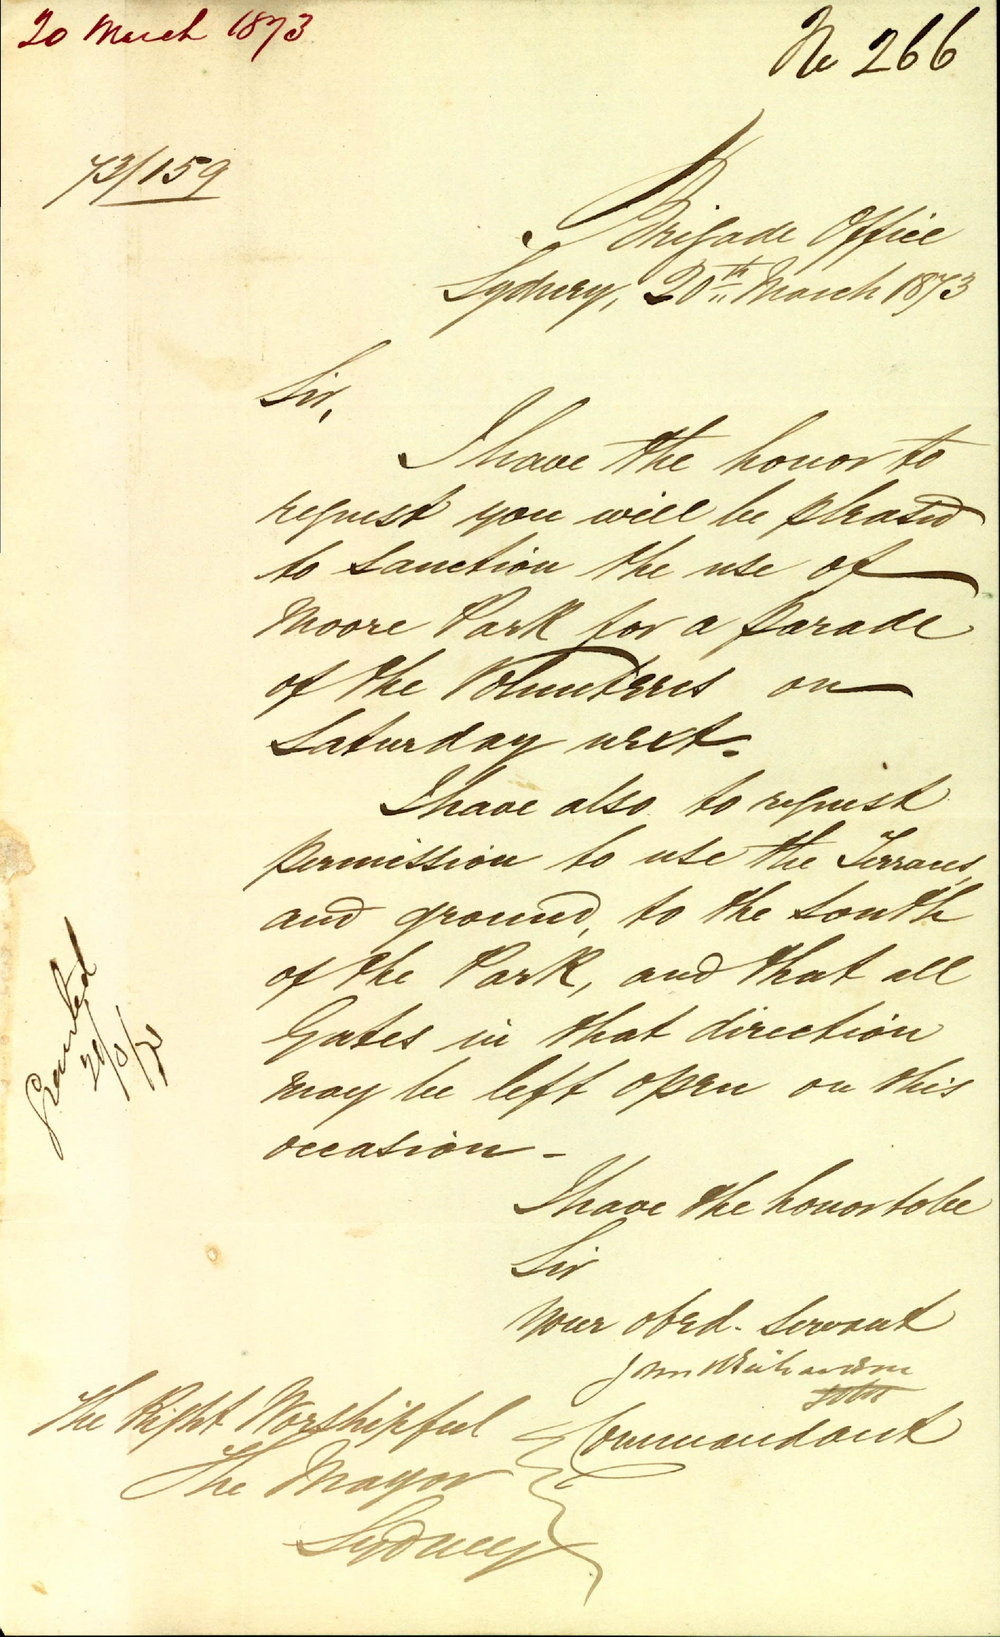 20 March 1873
No 266
73/159
Brigade Office
Sydney, 20th March 1873
Sir,
I have the honor to
request you will be pleased
to sanction the use of
Moore Park for a parade
of the Volunteers on
Saturday next.
I have also to request
permission to use the Terraces,
and ground, to the South
of the Park, and that all
Gates in that direction
may be left open on this
occasion -
Granted
I have the honor to be
Sir
Your obed. Servant
John Richardson
Commandant
The Right Worshipful
The Mayor
Sydney